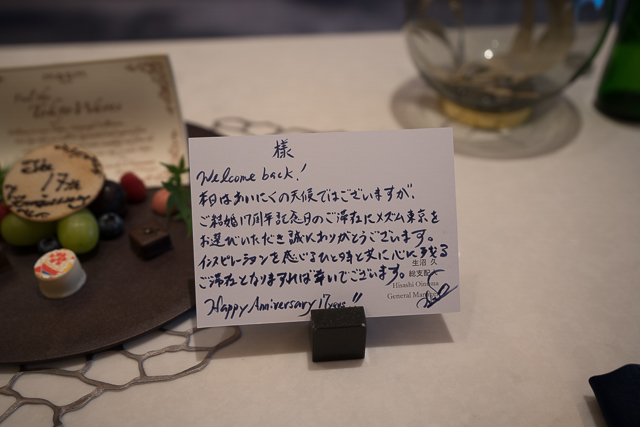 様
Welcome back!
本日はあいにくの天候ではございますが、
ご結婚17周年記念日のご滞在にメズム東京を
お選びいただき誠にありがとうございます。
インスピレーションを感じるひと時と共に心に残る
ご滞在となりますれば幸いでございます。
Happy Anniversary 17 years!!
生沼 久
総支配
Hisashi Oinuma
General Manager
The
17th
Anniversary